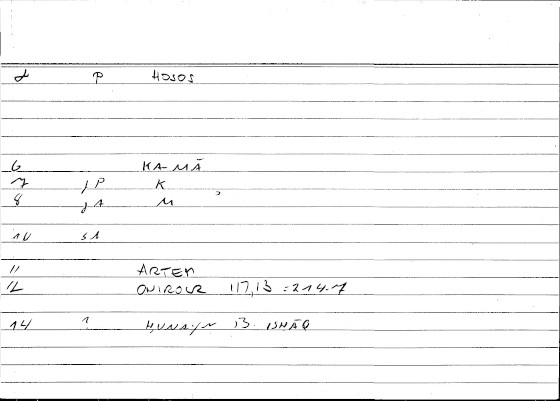 d P HOSOS
6 KA-MĀ
7 jP K
8 jA M
10 SA
11 ARTEM
12 ONIROCR 117,13 = 214.7
14 ? ḤUNAYN B. ISḤĀQ